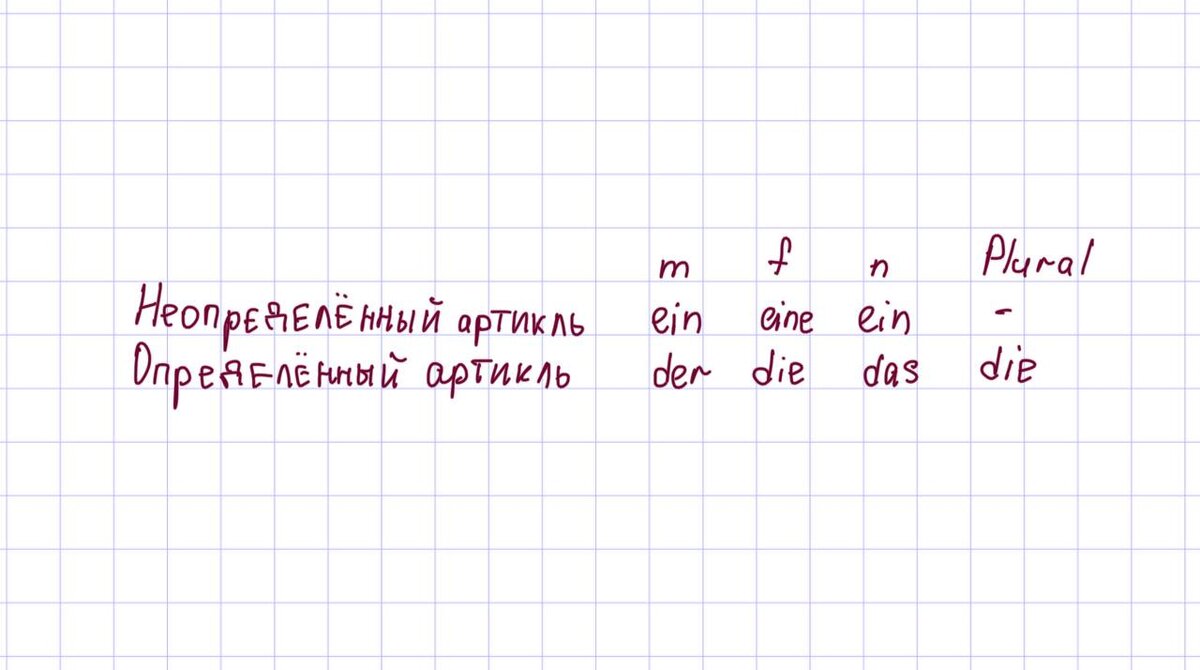 m f n Plural
Неопределённый артикль ein eine ein -
Определённый артикль der die das die